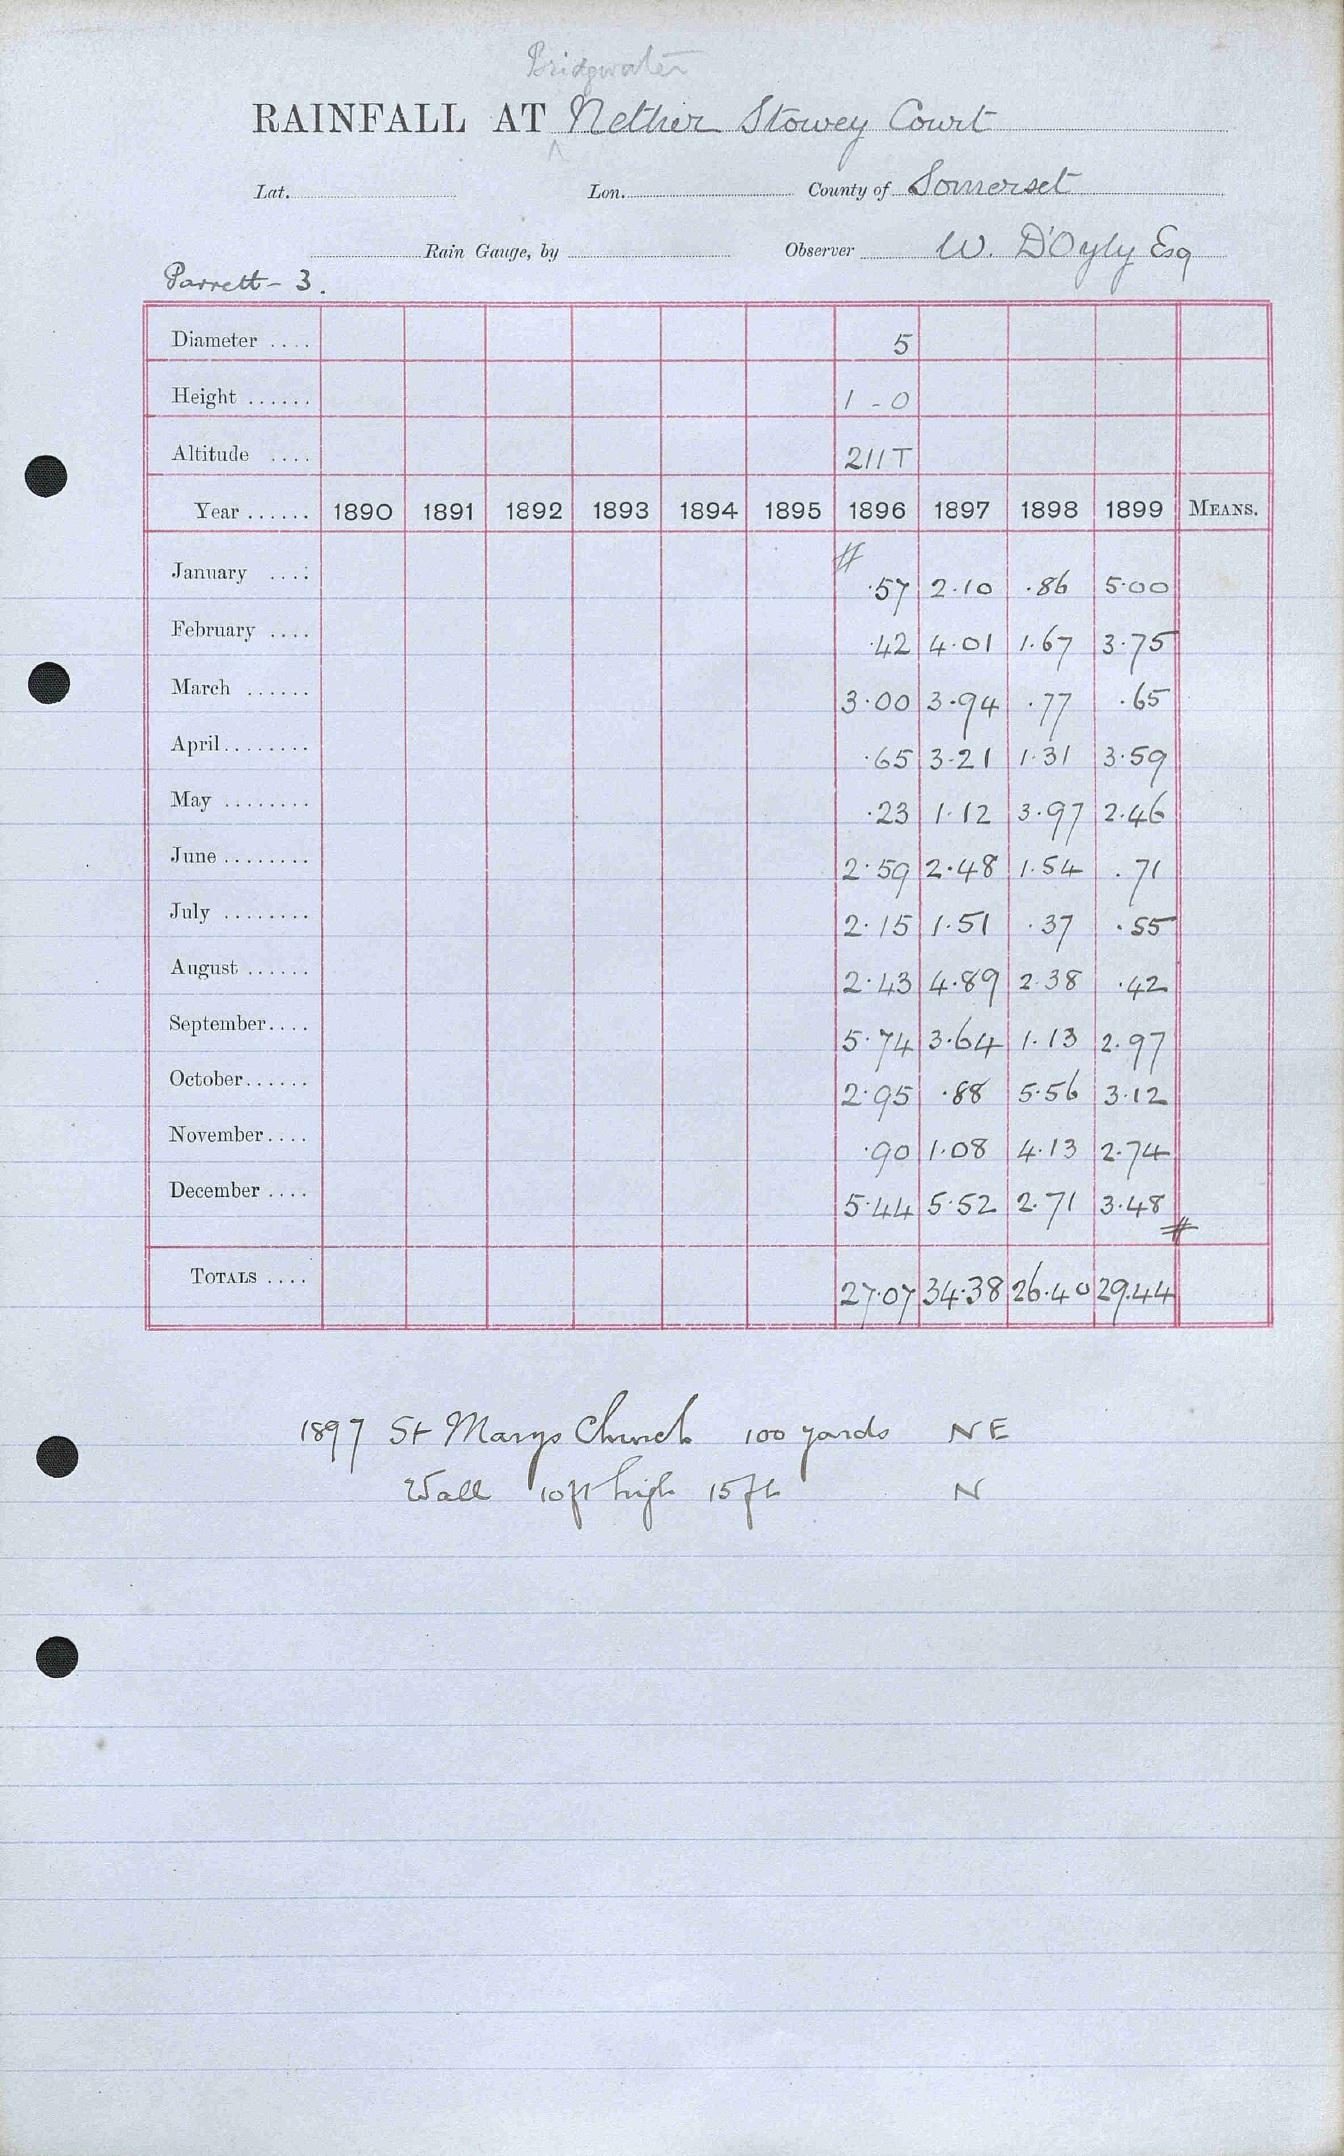 Bridgwater
RAINFALL AT Nether Stowey Court
Lat. Lon. County of Somerset
Rain Gauge, by Observer W. D'Oyly Esq
Parrett - 3.
Diameter .... 5
Height ...... 1 - 0
Altitude .... 211 T
Year ...... 1890 1891 1892 1893 1894 1895 1896 1897 1898 1899 MEANS.
#
January .... ·57 2·10 ·86 5·00
February .... ·42 4·01 1·67 3·75
March ...... 3·00 3·94 ·77 ·65
April ........ ·65 3·21 1·31 3·59
May ........ ·23 1·12 3·97 2·46
June ........ 2·59 2·48 1·54 ·71
July ........ 2·15 1·51 ·37 ·55
August ...... 2·43 4·89 2·38 ·42
September .... 5·74 3·64 1·13 2·97
October ...... 2·95 ·88 5·56 3·12
November .... ·90 1·08 4·13 2·74
December .... 5·44 5·52 2·71 3·48
#
TOTALS .... 27·07 34·38 26·40 29·44
1897 St Marys Church 100 yards NE
Wall 10 ft high 15 ft N